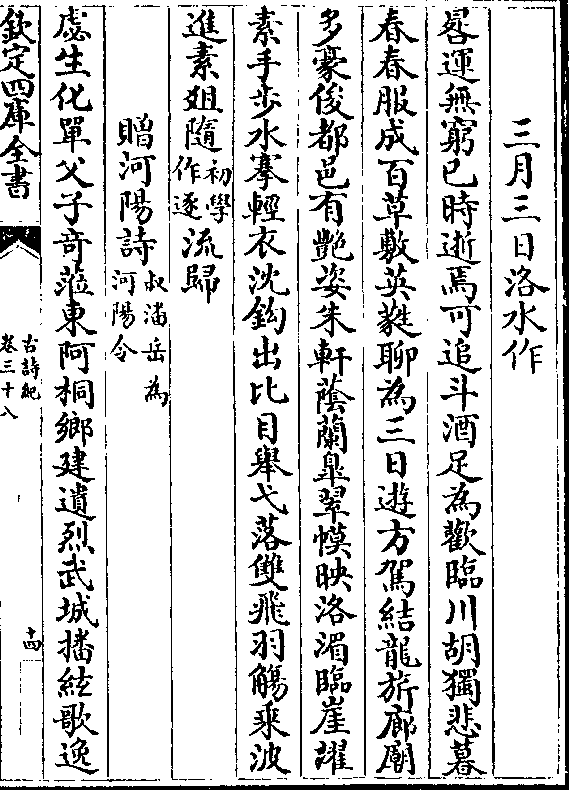 三月三日洛水作
晷運無窮已時逝焉可追斗酒足為歡臨川胡獨悲暮
春春服成百草敷英蕤聊為三日遊方駕結龍旂廊廟
多豪俊都邑有艷姿朱軒蔭蘭臯翠幙映洛湄臨崖濯
素手步水搴輕衣沈鈎出比目舉弋落雙飛羽觴乗波
進素俎隨初學作逐流歸
贈河陽詩叔潘岳為河陽令
虙生化單父子竒蒞東阿桐鄉建遺烈武城播絃歌逸
欽定四庫全書
古詩紀
卷三十八
十四